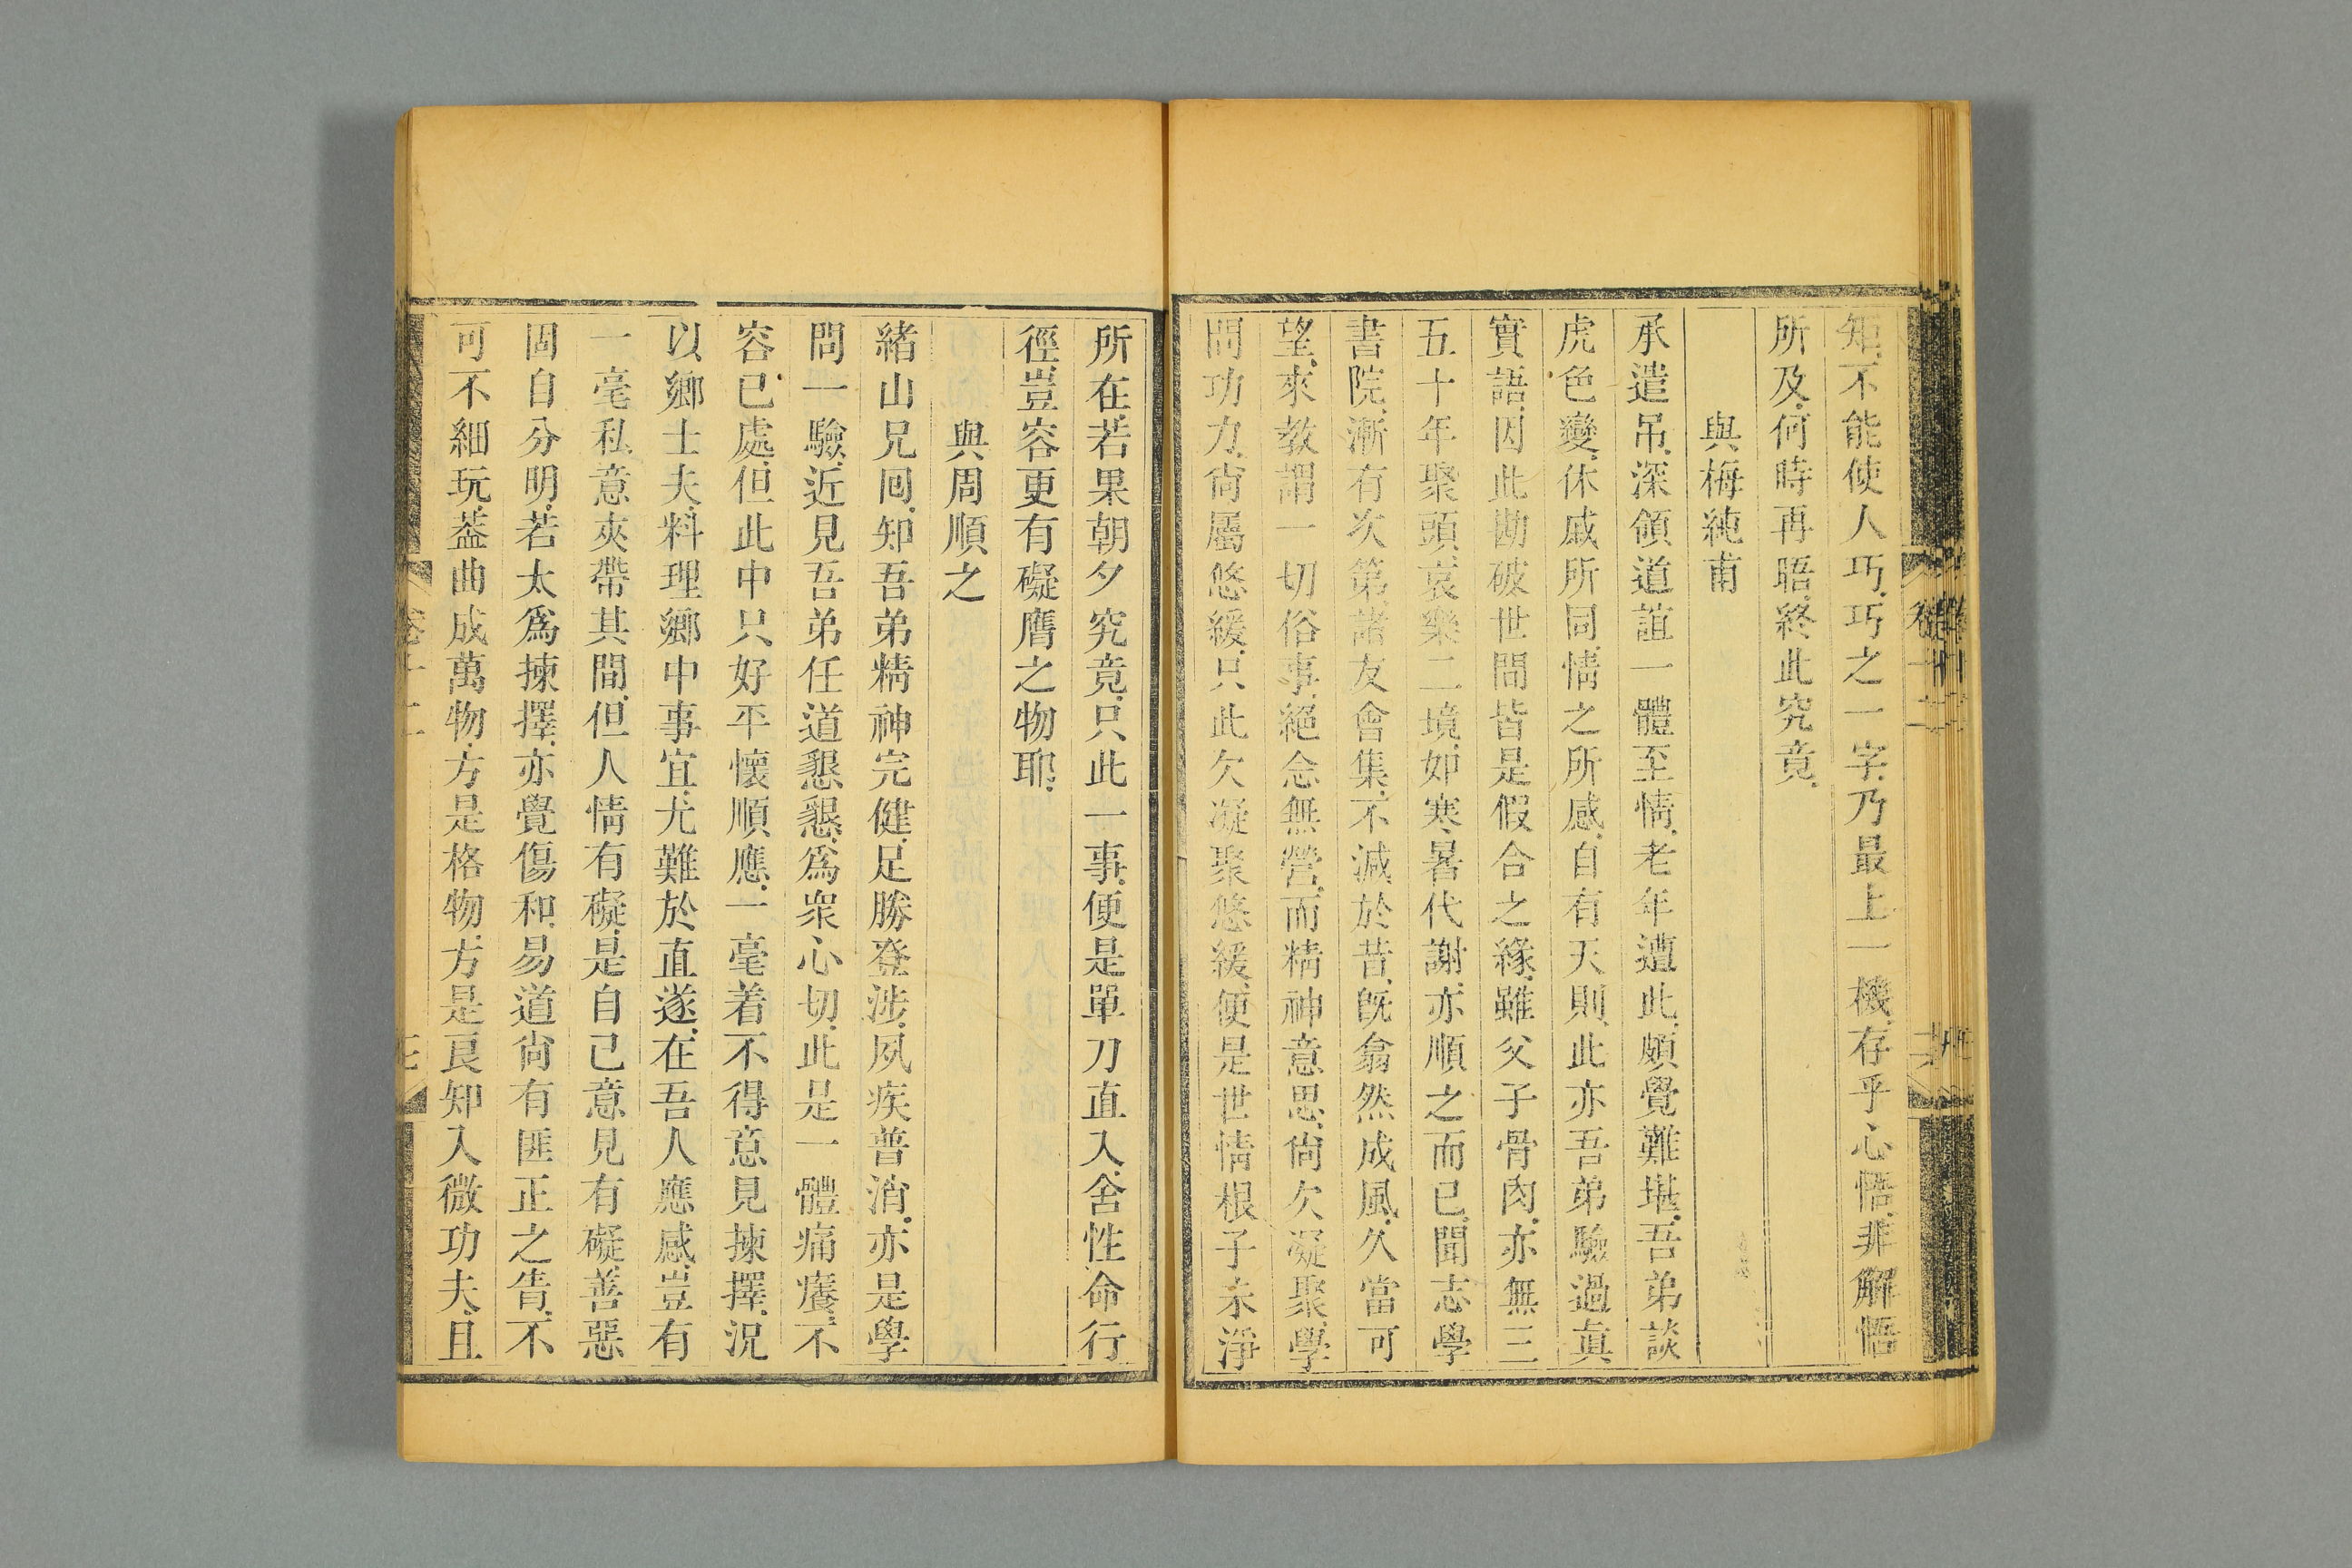 矩不能使人巧巧之一字乃最上一機存乎心悟非解悟
所及何時再晤終此究竟
與梅純甫
承遣吊深領道誼一體至情老年遭此頗覺難堪吾弟談
虎色變休戚所同情之所感自有天則此亦吾弟驗過真
實語因此勘破世間皆是假合之緣雖父子骨肉亦無三
五十年聚頭哀樂二境如寒暑代謝亦順之而已聞志學
書院漸有次第諸友會集不減於昔既翕然成風久當可
望來教謂一切俗事絕念無營而精神意思尚欠凝聚學
問功力尚屬悠緩只此欠凝聚悠緩便是世情根子未淨
所在若果朝夕究竟只此一事便是單刀直入舍性命行
徑豈容更有礙膺之物耶
與周順之
緒山兄回知吾弟精神完健足勝登涉夙疾普消亦是學
問一驗近見吾弟任道懇懇為衆心切此是一體痛癢不
容已處但此中只好平懷順應一毫着不得意見揀擇況
以鄉士夫料理鄉中事宜尤難於直遂在吾人應感豈有
一毫私意夾帶其間但人情有礙是自己意見有礙善惡
固自分明若太為揀擇亦覺傷和易道尚有匪正之眚不
可不細玩葢曲成萬物方是格物方是良知入微功夫且
卷十二